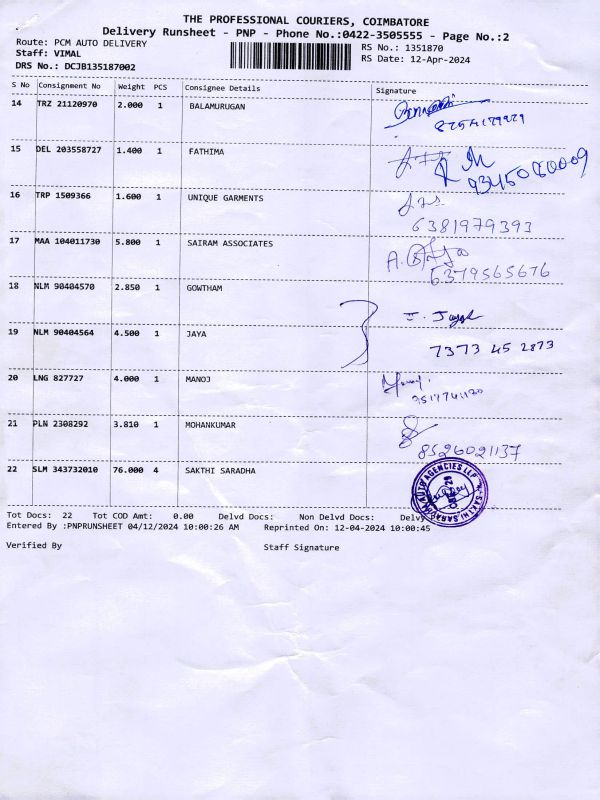 THE PROFESSIONAL COURIERS, COIMBATORE
Delivery Runsheet - PNP - Phone No.:0422-3505555 - Page No.:2
Route: PCM AUTO DELIVERY
RS No.: 1351870
Staff: VIMAL
RS Date: 12-Apr-2024
DRS No.: DCJB135187002
S No Consignment No Weight PCS Consignee Details Signature
14 TRZ 21120970 2.000 1 BALAMURUGAN
15 DEL 203558727 1.400 1 FATHIMA
9345080009
16 TRP 1509366 1.600 1 UNIQUE GARMENTS
6381979393
17 MAA 104011730 5.800 1 SAIRAM ASSOCIATES
6379565676
18 NLM 90404570 2.850 1 GOWTHAM
19 NLM 90404564 4.500 1 JAYA
7373 45 2873
20 LNG 827727 4.000 1 MANOJ
21 PLN 2308292 3.810 1 MOHANKUMAR
8526021137
22 SLM 343732010 76.000 4 SAKTHI SARADHA
AUTO AGENCIES LLP
Tot Docs: 22 Tot COD Amt: 0.00 Delvd Docs: Non Delvd Docs:
Entered By :PNPRUNSHEET 04/12/2024 10:00:26 AM Reprinted On: 12-04-2024 10:00:45
Verified By Staff Signature